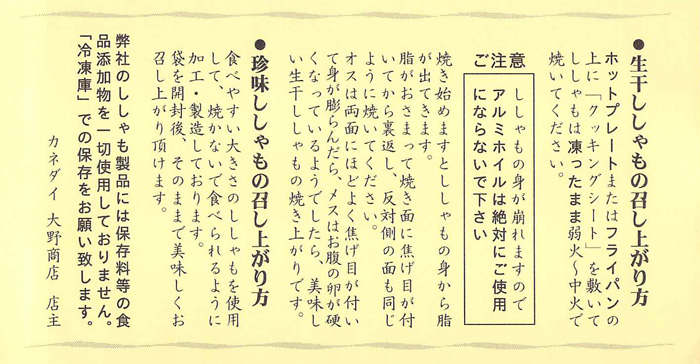 ●生干ししゃもの召し上がり方
ホットプレートまたはフライパンの
上に「クッキングシート」を敷いて
ししゃもは凍ったまま弱火～中火で
焼いてください。
ご注意
ししゃもの身が崩れますので
アルミホイルは絶対にご使用
にならないで下さい
焼き始めますとししゃもの身から脂
が出てきます。
脂がおさまって焼き面に焦げ目が付
いてから裏返し、反対側の面も同じ
ように焼いてください。
オスは両面にほどよく焦げ目が付い
て身が膨らんだら、メスはお腹の卵が硬
くなっているようでしたら、美味し
い生干しししゃもの焼き上がりです。
●珍味ししゃもの召し上がり方
食べやすい大きさのししゃもを使用
して、焼かないで食べられるように
加工・製造しております。
袋を開封後、そのままで美味しくお
召し上がり頂けます。
弊社のししゃも製品には保存料等の食
品添加物を一切使用しておりません。
「冷凍庫」での保存をお願い致します。
カネダイ 大野商店 店主